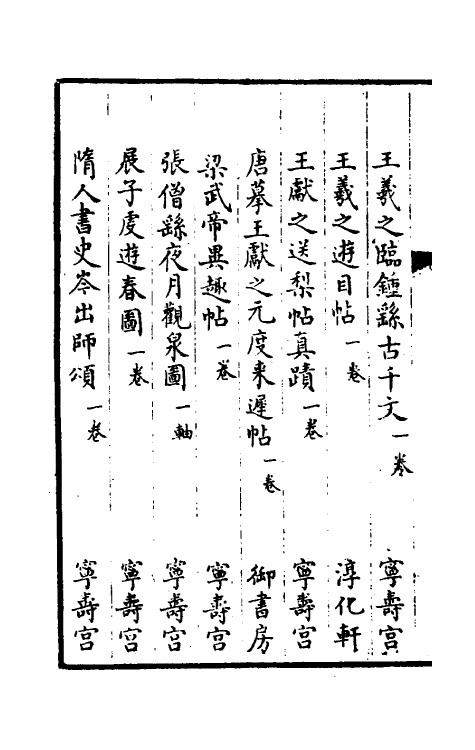 王羲之臨鍾繇古千文一卷 寧壽宫
王羲之遊目帖一卷 淳化軒
王獻之送梨帖真蹟一卷 寧壽宫
唐摹王獻之元度来遲帖一卷 御書房
梁武帝異趣帖一卷 寧壽宫
張僧繇夜月觀泉圖一軸 寧壽宫
展子虔遊春圖一卷 寧壽宫
隋人書史岑出師頌一卷 寧壽宫